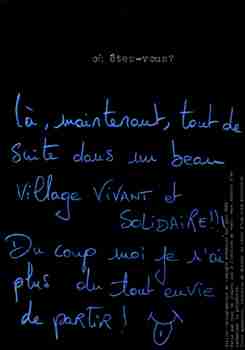 où êtes-vous?
là, maintenant, tout de
suite dans un beau
village VIVANT et
SOLIDAIRE!!!
Du coup moi je n'ai
plus du tout envie
de partir!